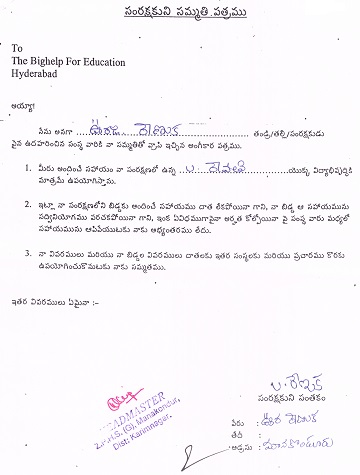 సంరక్షకుని సమ్మతి పత్రము
To
The Bighelp For Education
Hyderabad
అయ్యా!
నేను అనగా ........ రేణుక ........ తండ్రి/తల్లి/సంరక్షకుడు
పైన ఉదహరించిన సంస్థ వారికి నా సమ్మతితో వ్రాసి ఇచ్చిన అంగీకార పత్రము.
1. మీరు అందించే సహాయం నా సంరక్షణలో ఉన్న ........ యొక్క విద్యాభివృద్ధికి
మాత్రమే ఉపయోగిస్తాను.
2. ఇట్లా నా సంరక్షణలోని బిడ్డకు అందించే సహాయము దాత లేకపోయినా గాని, నా బిడ్డ ఆ సహాయమును
సద్వినియోగము పరచకపోయినా గాని, ఇంక ఏవిధముగానైనా అర్హత కోల్పోయినా పై సంస్థ వారు మధ్యలో
సహాయమును ఆపివేయుటకు నాకు అభ్యంతరము లేదు.
3. నా వివరములు మరియు నా బిడ్డల వివరములు దాతలకు ఇతర సంస్థలకు మరియు ప్రచారము కొరకు
ఉపయోగించుకొనుటకు నాకు సమ్మతము.
ఇతర వివరములు ఏమైనా :-
సంరక్షకుని సంతకం
HEADMASTER
Z.P.H.S. (G), Manakondur,
Dist: Karimnagar.
పేరు : రేణుక
తేదీ :
అడ్రసు : మానకొండూరు